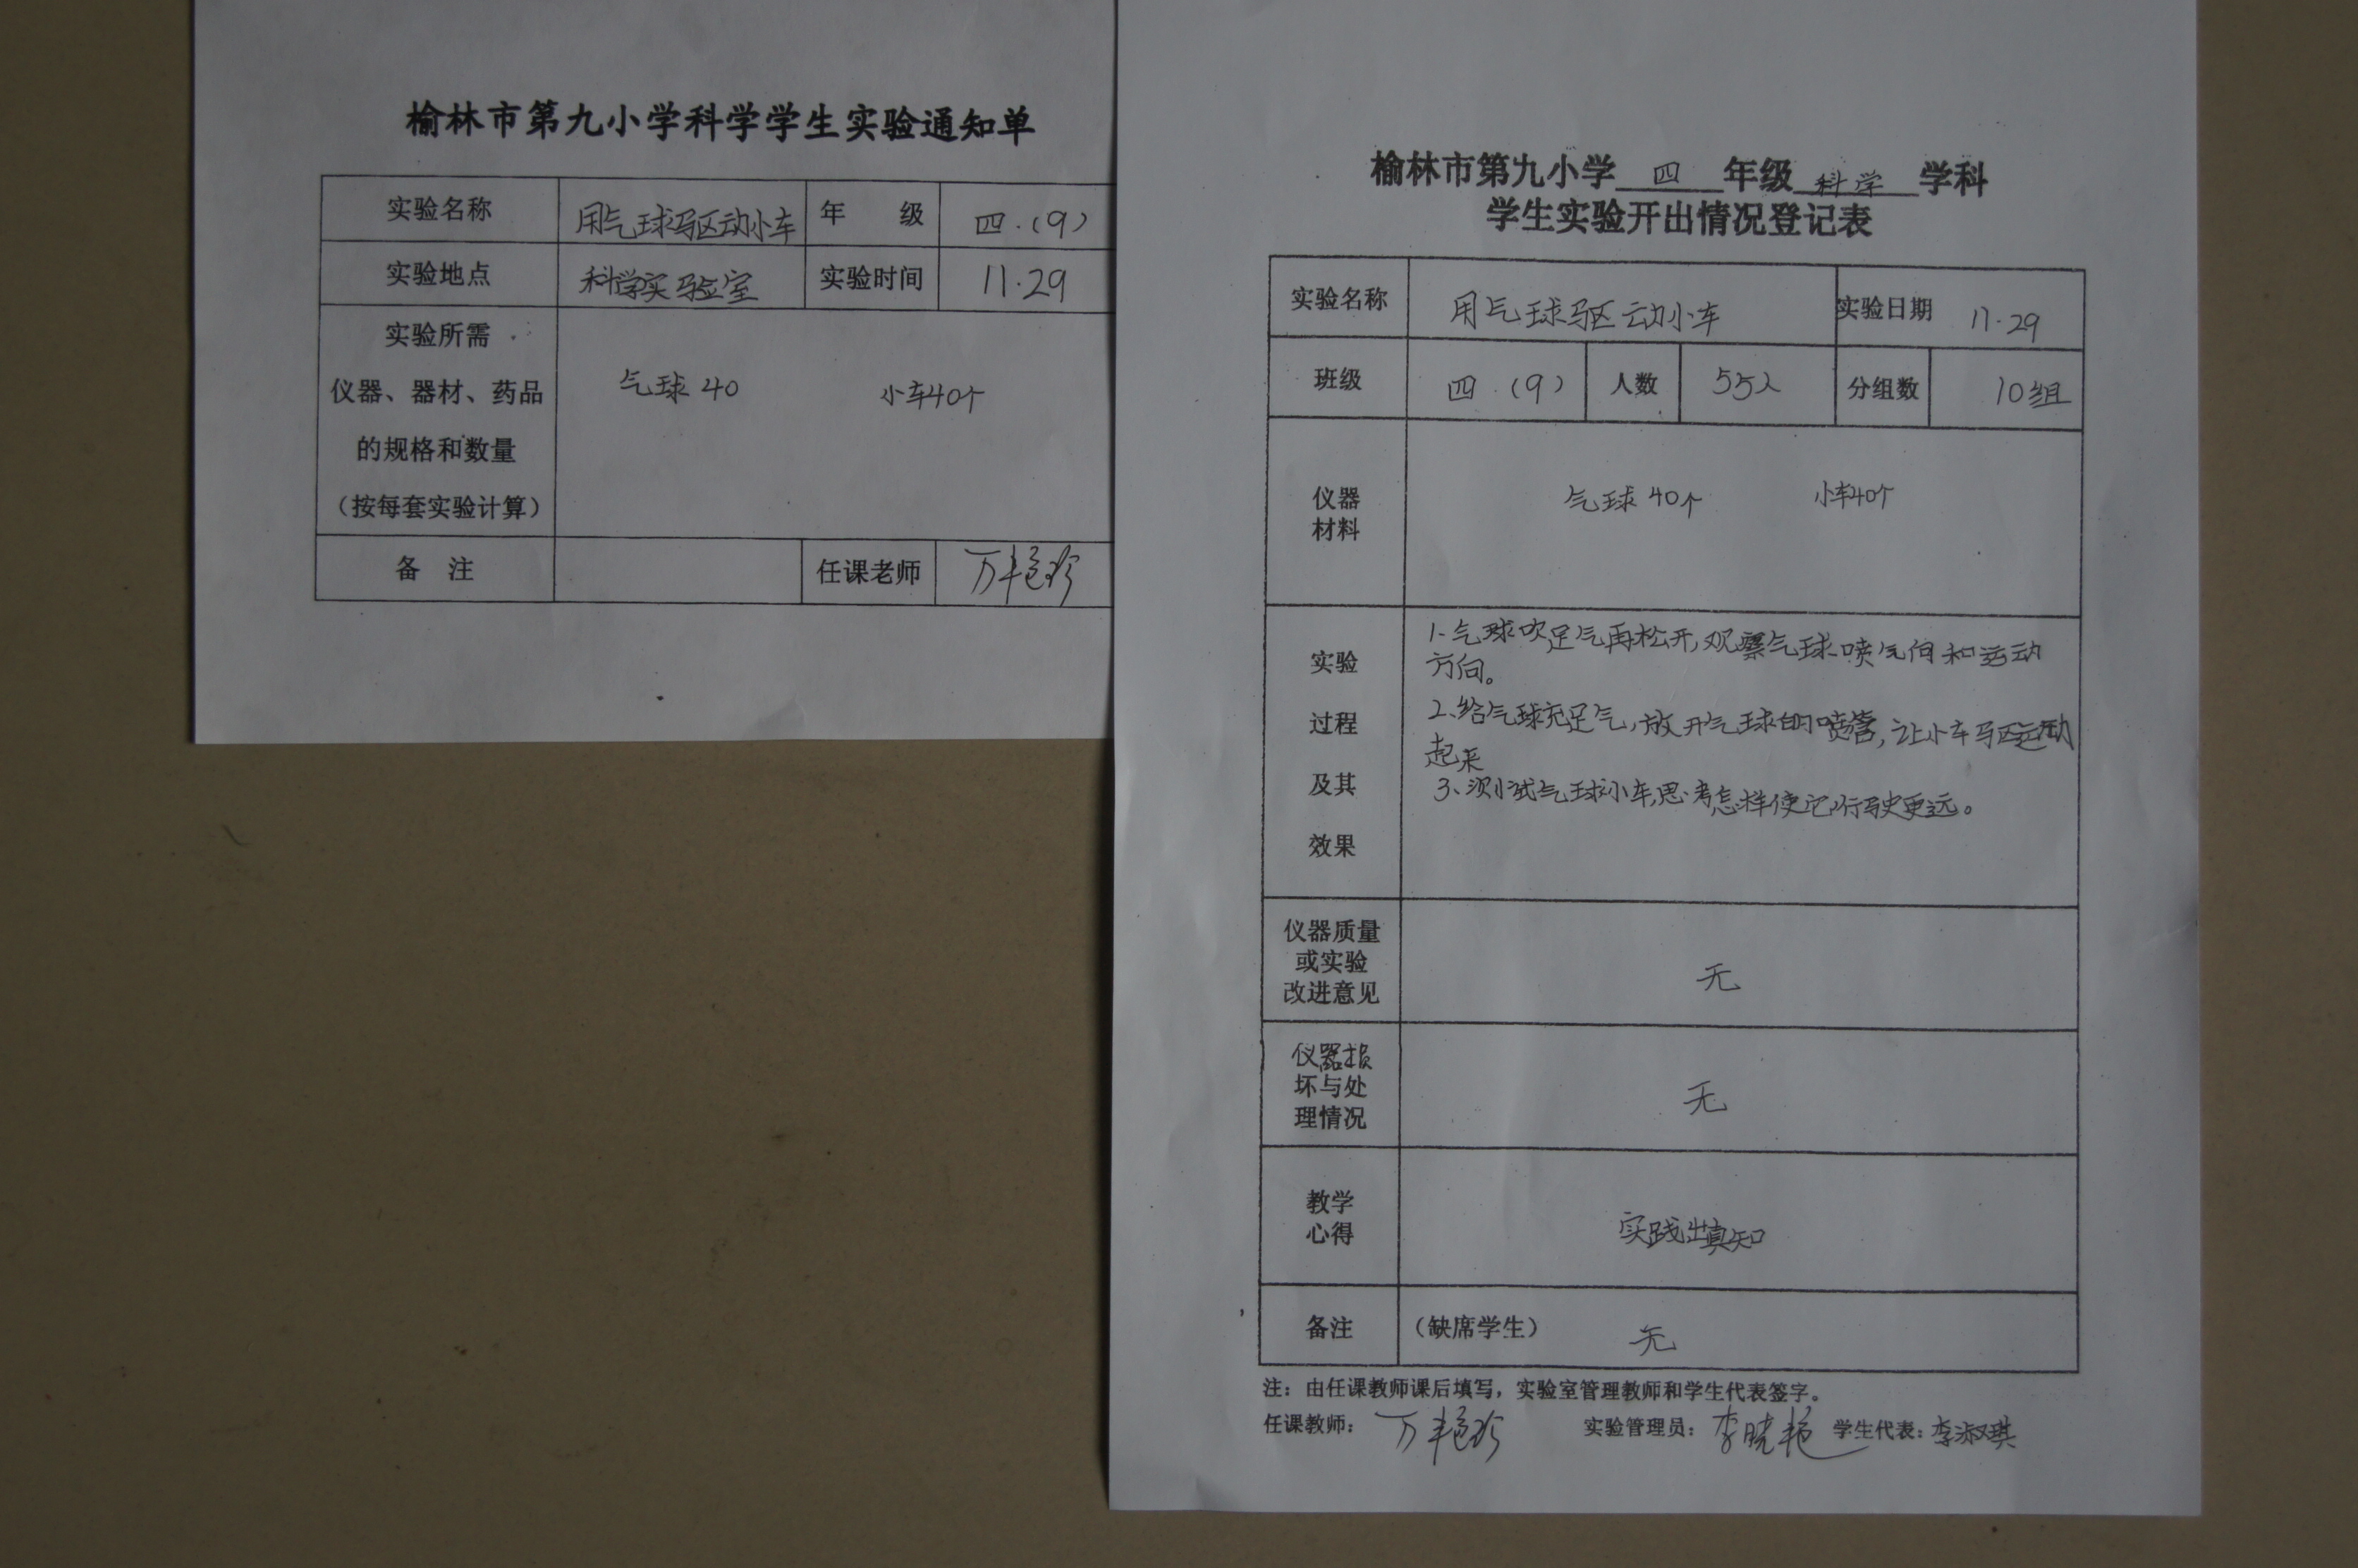 榆林市第九小学科学学生实验通知单
实验名称 用气球驱动小车 年 级 四.(9)
实验地点 科学实验室 实验时间 11.29
实验所需
仪器、器材、药品 气球 40 小车40个
的规格和数量
(按每套实验计算)
备 注 任课老师 万艳珍
榆林市第九小学 四 年级 科学 学科
学生实验开出情况登记表
实验名称 用气球驱动小车 实验日期 11.29
班级 四.(9) 人数 55人 分组数 10组
仪器
材料
气球 40个 小车40个
实验
过程
及其
效果
1.气球吹足气再松开,观察气球喷气向和运动
方向。
2、给气球充足气,放开气球的喷管,让小车驱运动
起来
3、测试气球小车,思考怎样使它行驶更远。
仪器质量
或实验
改进意见
无
仪器损
坏与处
理情况
无
教学
心得
实践出真知
备注 (缺席学生) 无
注:由任课教师课后填写,实验室管理教师和学生代表签字。
任课教师: 万艳珍 实验管理员: 李晓艳 学生代表: 李淑琪